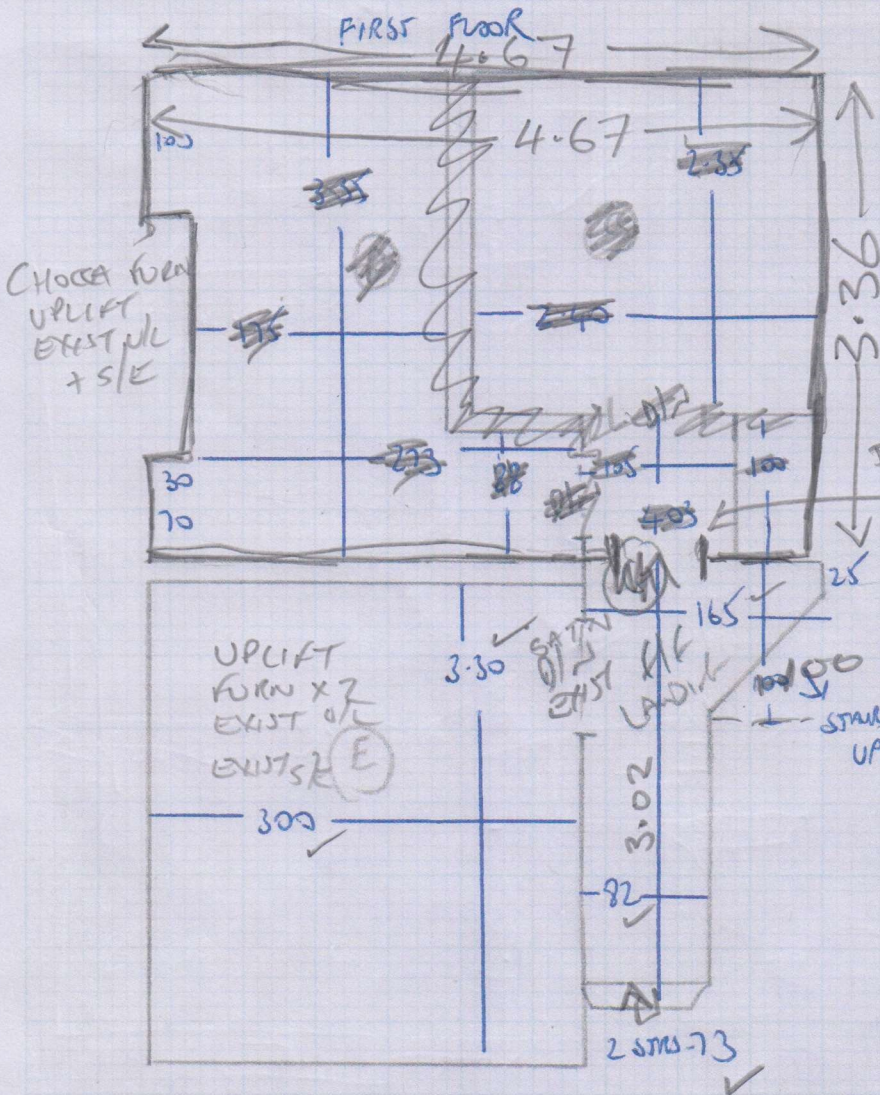 FIRST FLOOR
4.67
4.67
100
3.35
2.35
3.36
CHOCCA FURN
UPLIFT
EXIST U/L
+ S/E
175
2.40
273
30
70
88
105
100
403
25
165
UPLIFT
FURN X 2
EXIST U/L
EXIST S/E
E
3.30
EXIST
LANDING
100
UP
3.02
300
82
2 STRS-73